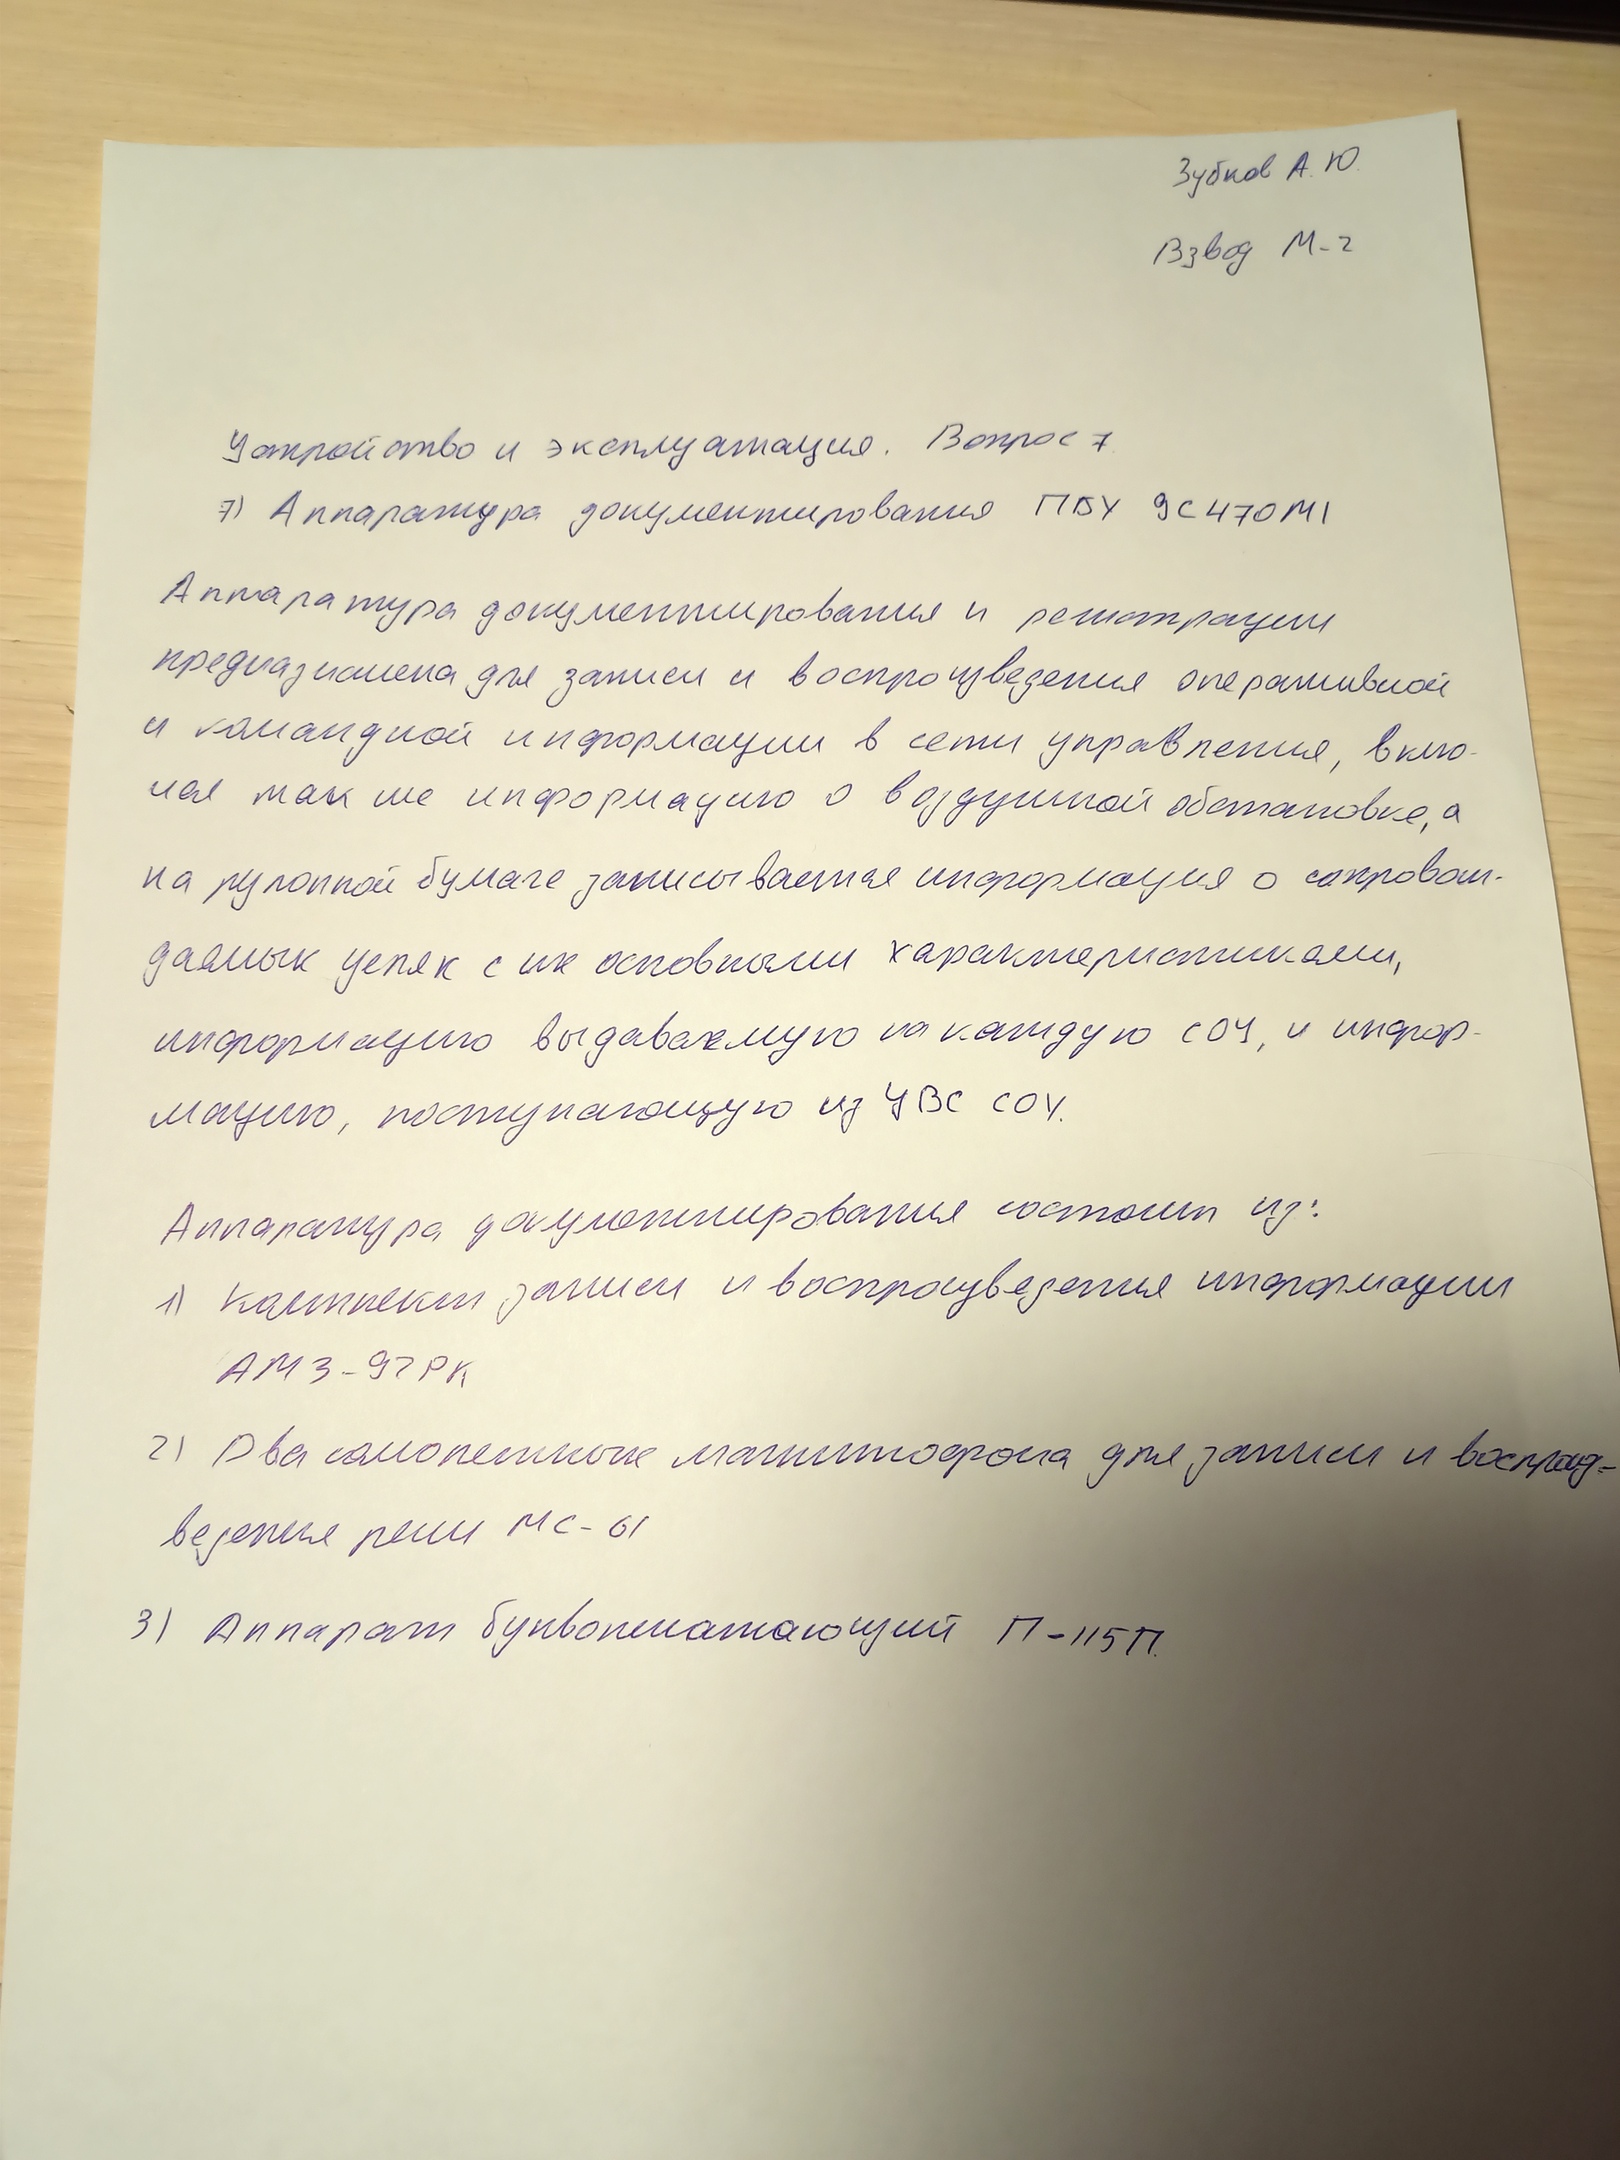 Зубков А.Ю.
Взвод М-2
Устройство и эксплуатация. Вопрос 7
7) Аппаратура документирования ПБУ 9С470М1
Аппаратура документирования и регистрации
предназначена для записи и воспроизведения оперативной
и командной информации в сети управления, вклю-
чая так же информацию о воздушной обстановке, а
на рулонной бумаге записывается информация о сопровож-
даемых целях с их основными характеристиками,
информацию выдаваемую на каждую СОУ, и инфор-
мацию, поступающую из ЦВС СОУ.
Аппаратура документирования состоит из:
1) Комплект записи и воспроизведения информации
АМЗ-92РК
2) Два самолетные магнитофона для записи и воспроиз-
ведения речи МС-61
3) Аппарат буквопечатающий П-115П.